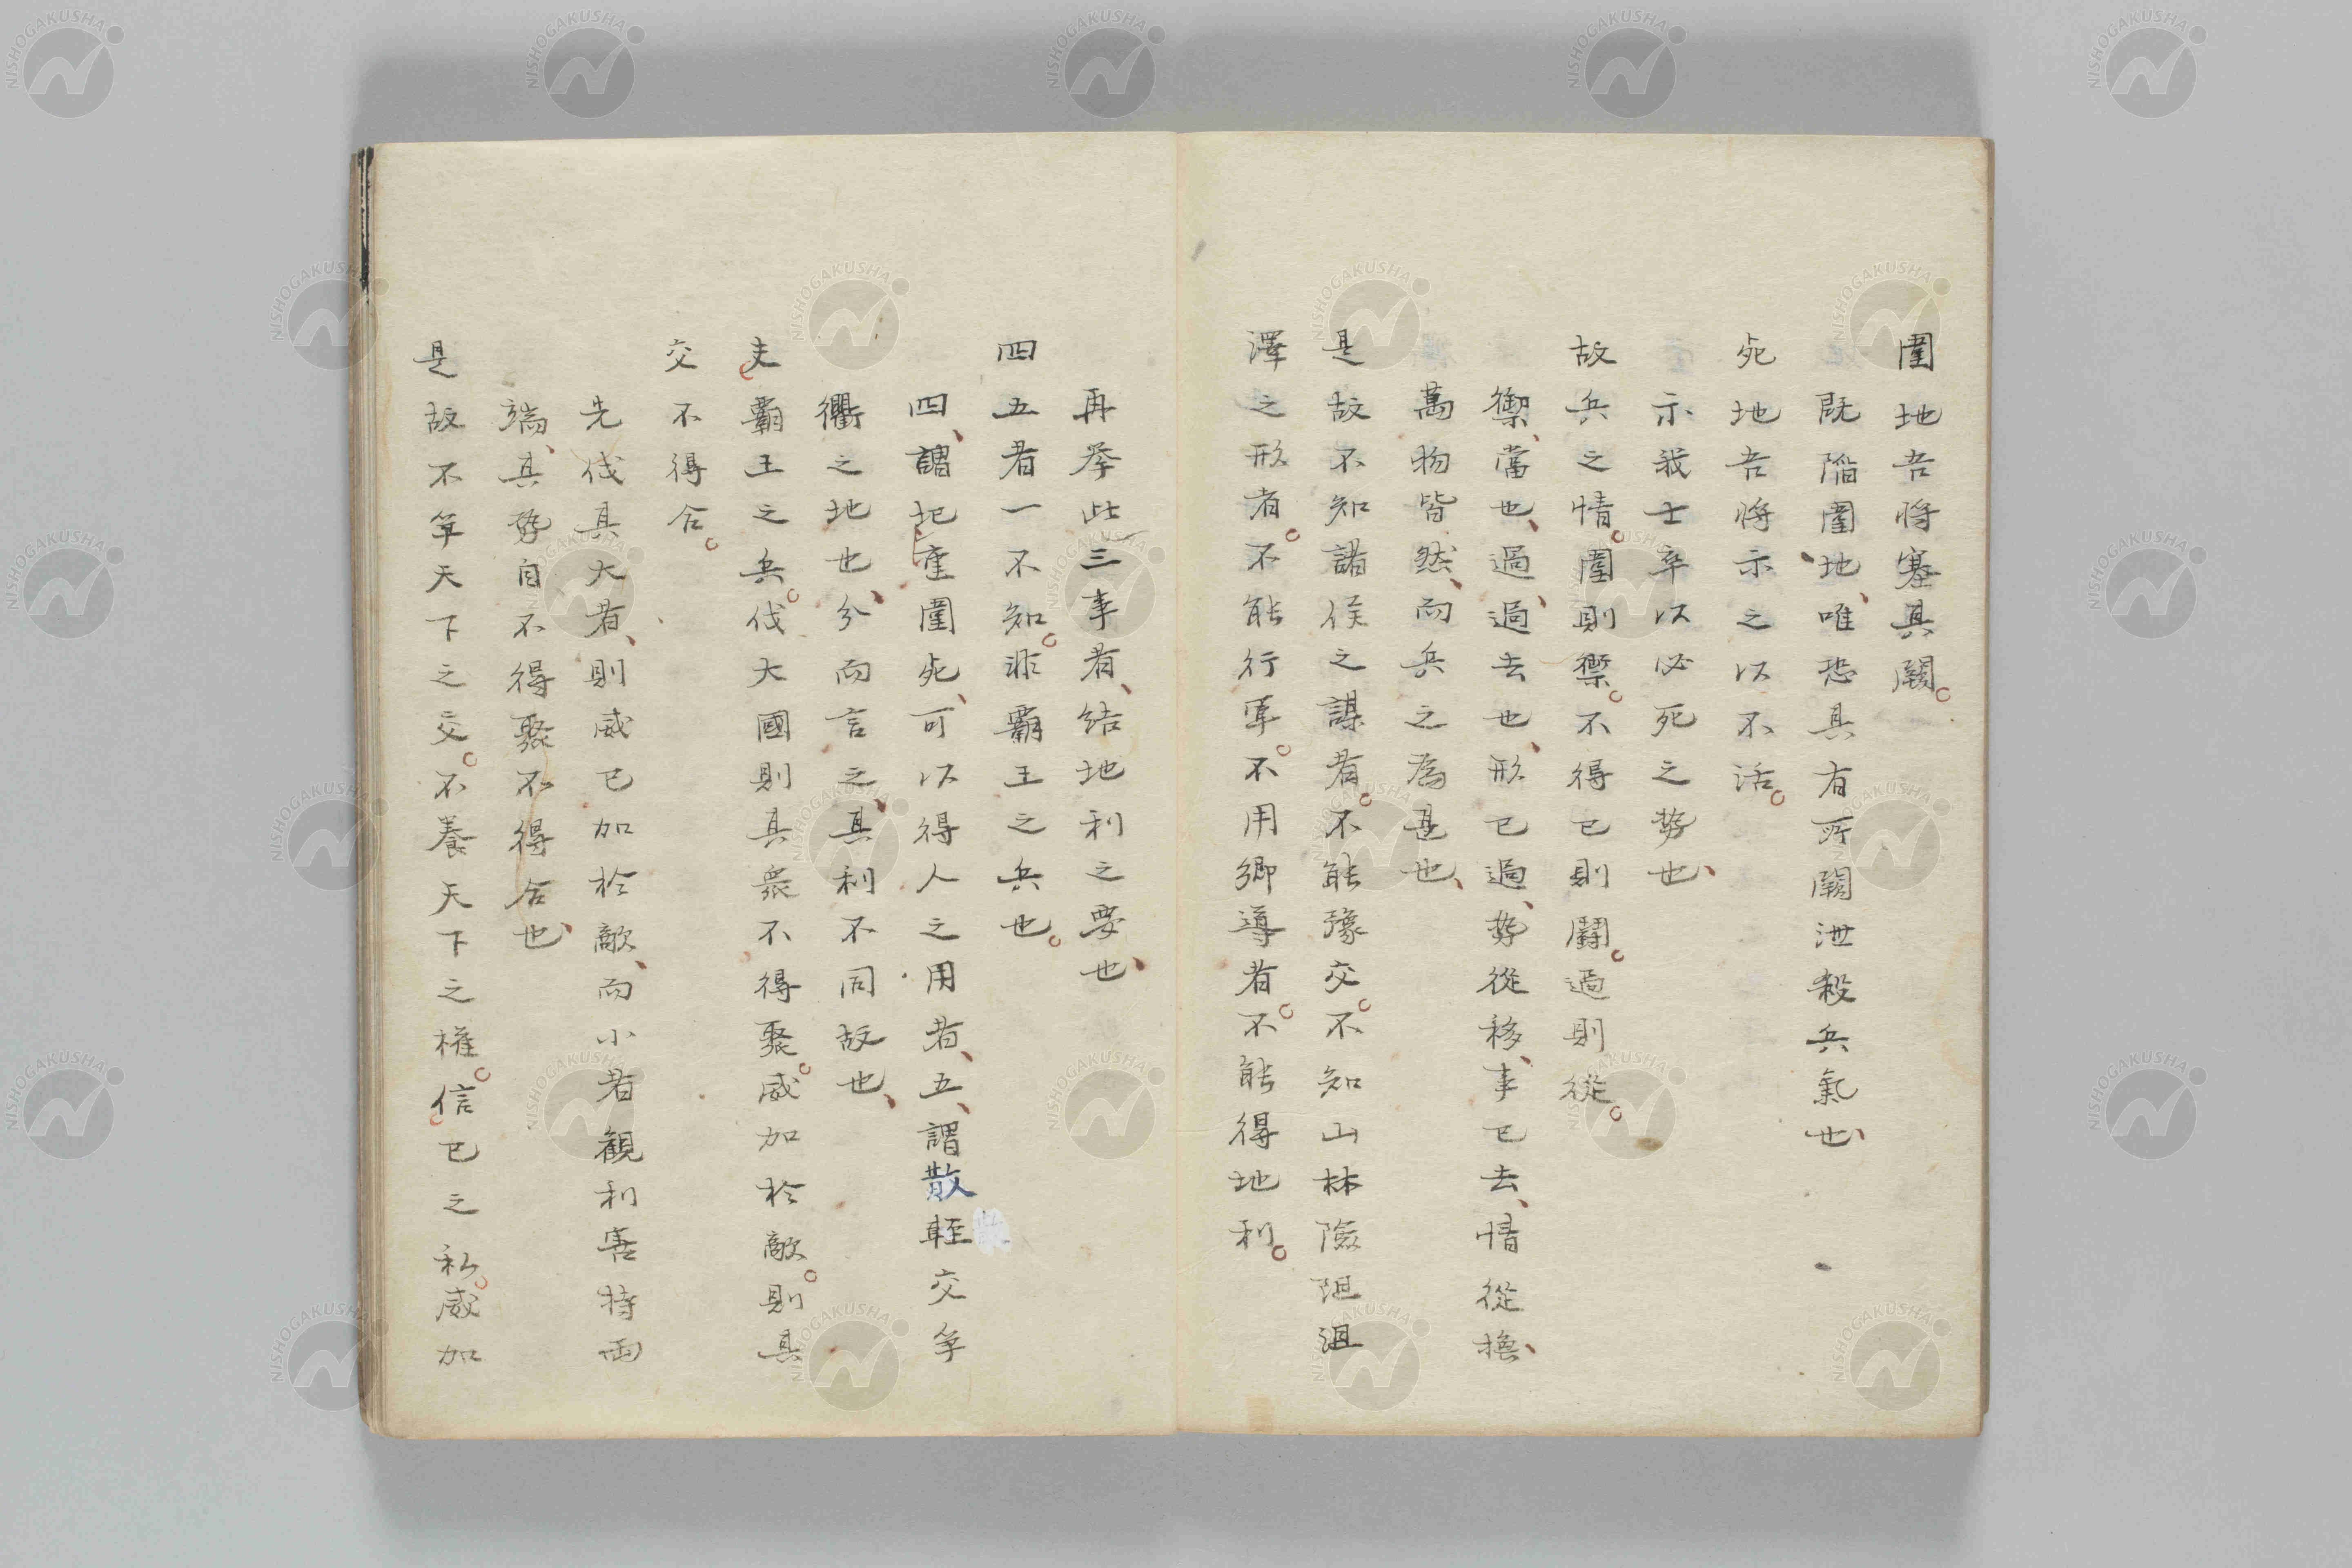 圍地吾將塞其闕
既陷圍地唯恐其有所闕泄殺兵氣也
死地吾將示之以不活
示我士卒以必死之勢也
故兵之情圍則禦不得已則鬪過則從
禦當也過過去也形已過勢從移事已去情從換
萬物皆然而兵之為甚也
是故不知諸侯之謀者不能豫交不知山林險阻沮
澤之形者不能行軍不用鄉導者不能得地利
再擧此三事者結地利之要也
四五者一不知非霸王之兵也
四謂圮重圍死可以得人之用者五謂散輕交爭
衢之地也分而言之其利不同故也
夫霸王之兵伐大國則其衆不得聚威加於敵則其
交不得合
先伐其大者則威已加於敵而小者觀利害持両
端其勢自不得聚不得合也
是故不爭天下之交不養天下之權信已之私威加
NISHOGAKUSHA